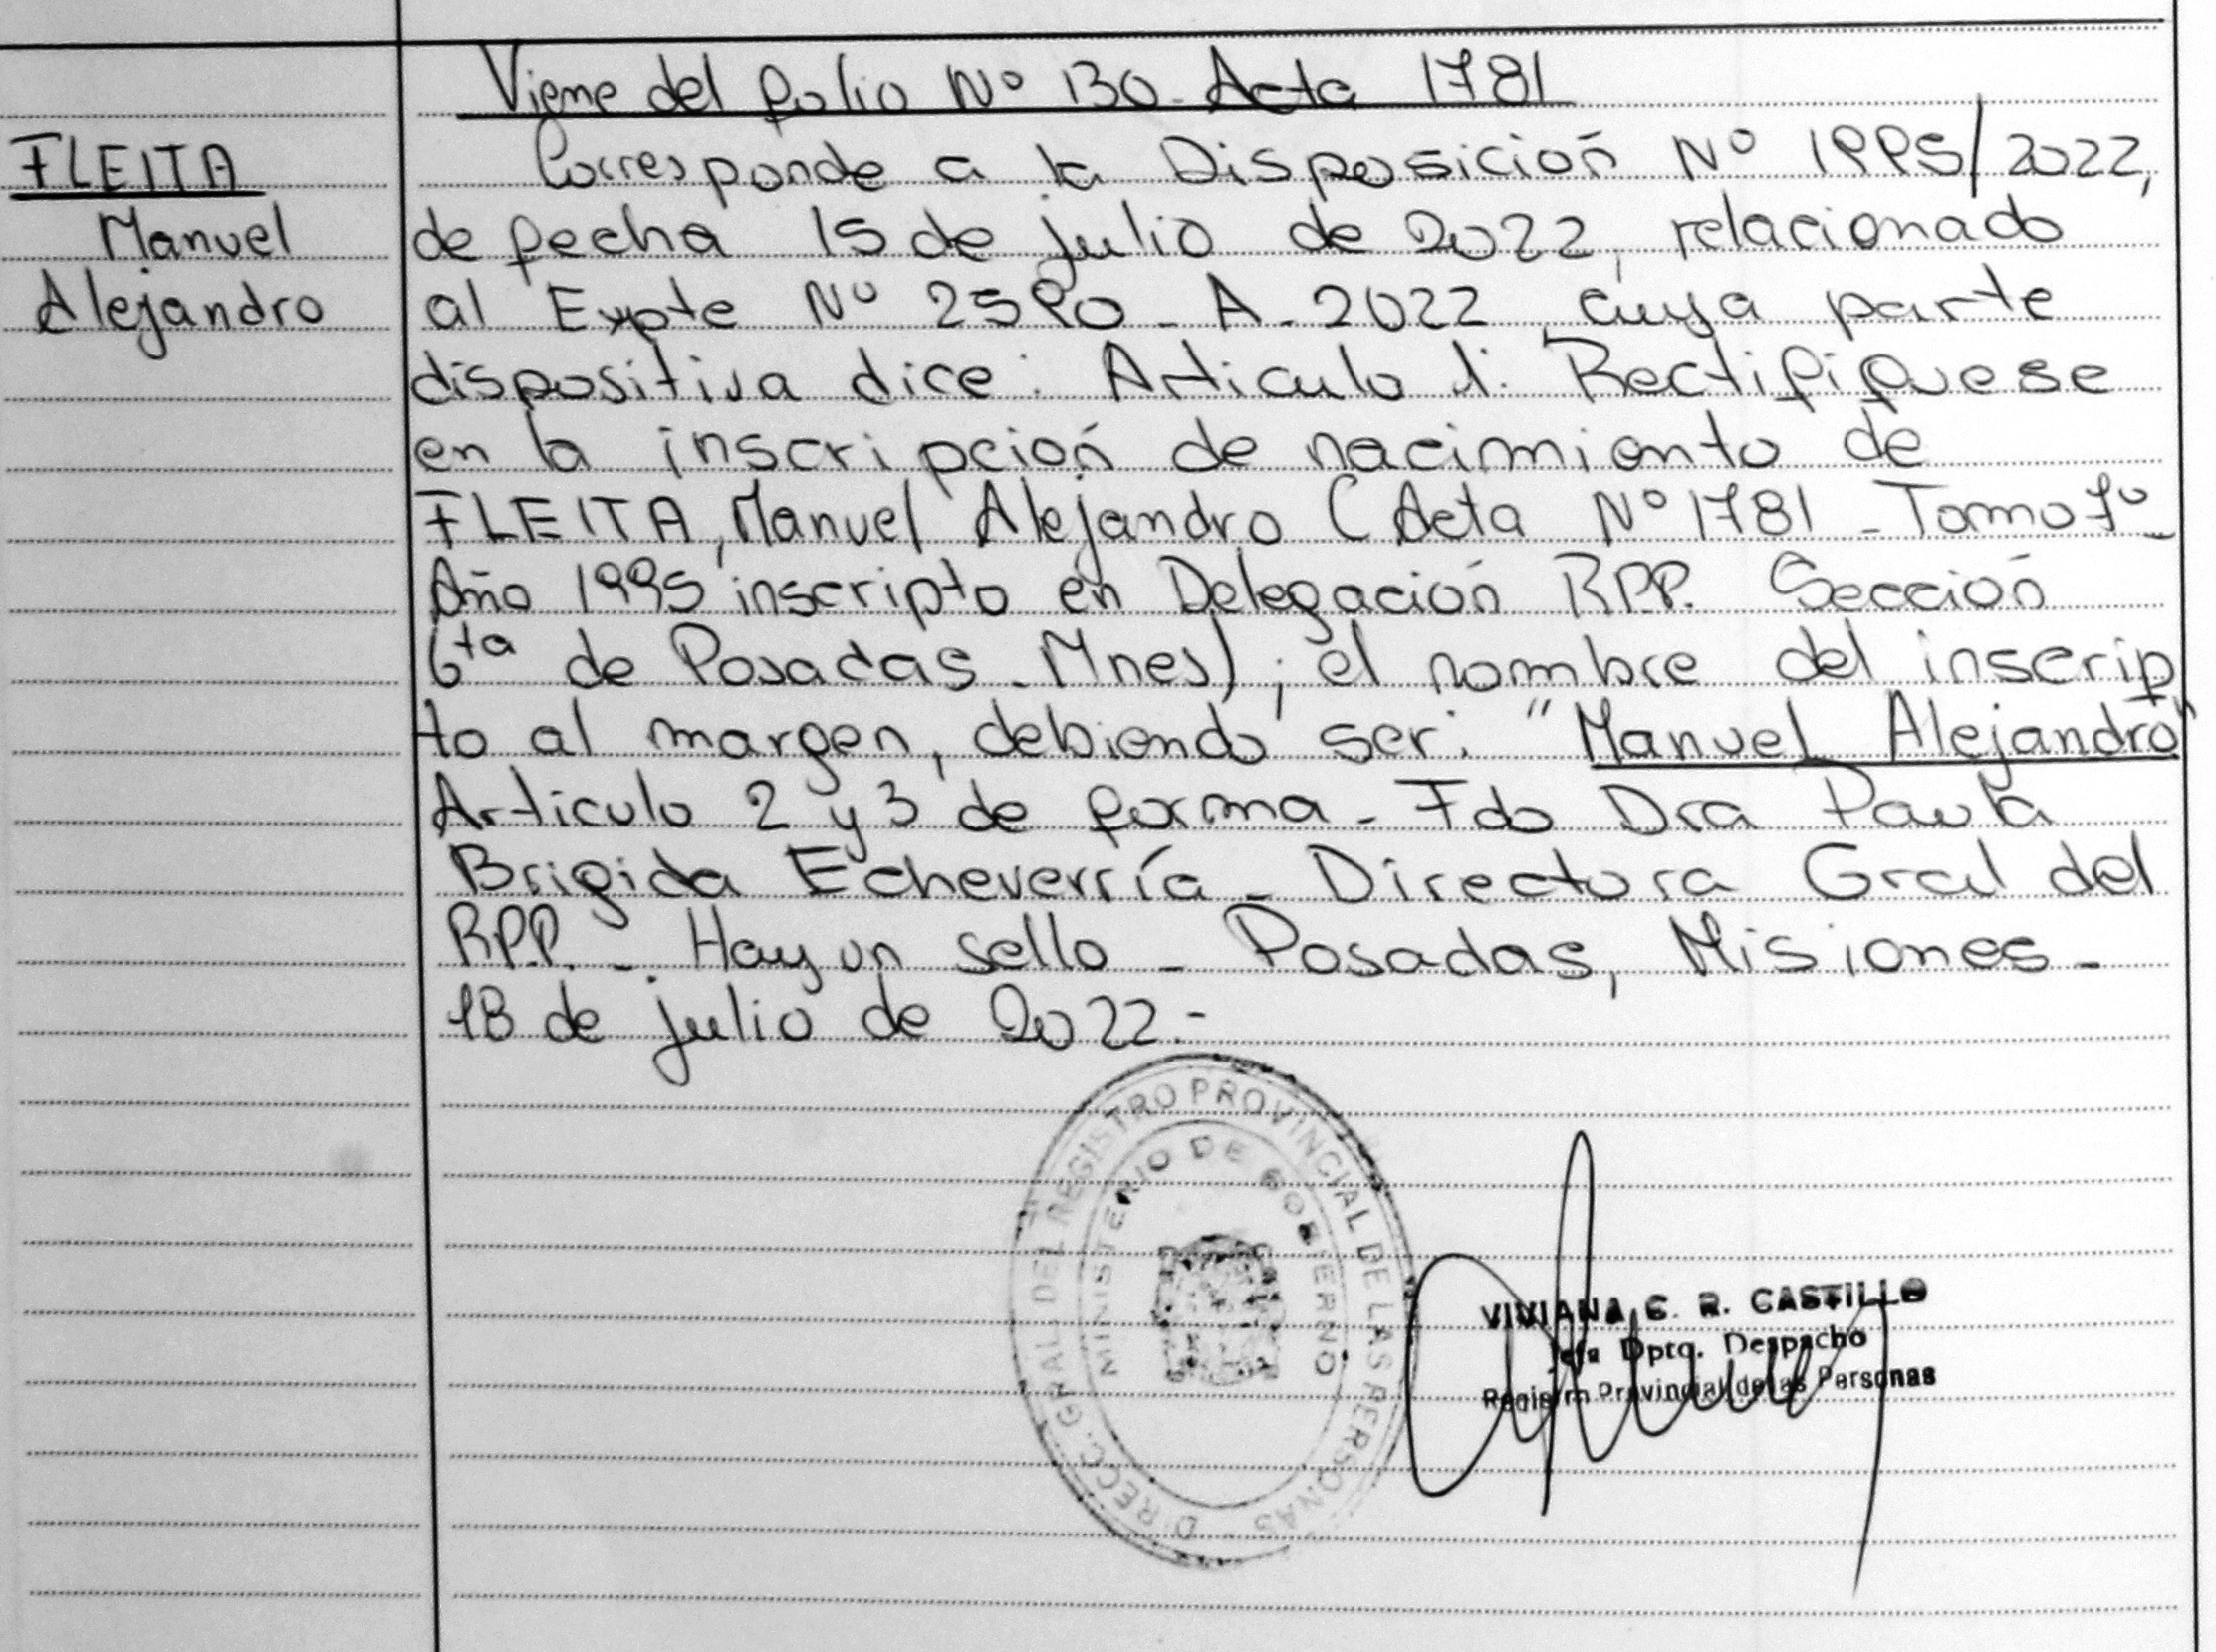 Viene del folio Nº 130- Acta 1781
FLEITA
Manuel
Alejandro
Corresponde a la Disposición Nº 1995/2022,
de fecha 15 de julio de 2022, relacionado
al Expte Nº 2590 - A - 2022, cuya parte
dispositiva dice: Articulo 1: Rectifiquese
en la inscripción de nacimiento de
FLEITA, Manuel Alejandro (Acta Nº 1781 - Tomo 7º -
Año 1995 inscripto en Delegación R.P.P. Sección
6ta de Posadas - Mnes); el nombre del inscrip
to al margen, debiendo ser: "Manuel Alejandro"
Articulo 2 y 3 de forma - Fdo Dra Paula
Brigida Echeverría - Directora Gral del
R.P.P. -. Hay un sello - Posadas, Misiones -
18 de julio de 2022.-
DIRECC. GRAL. DEL REGISTRO PROVINCIAL DE LAS PERSONAS
MINISTERIO DE GOBIERNO
VIVIANA C. R. CASTILLO
Jefa Dpto. Despacho
Registro Provincial de las Personas